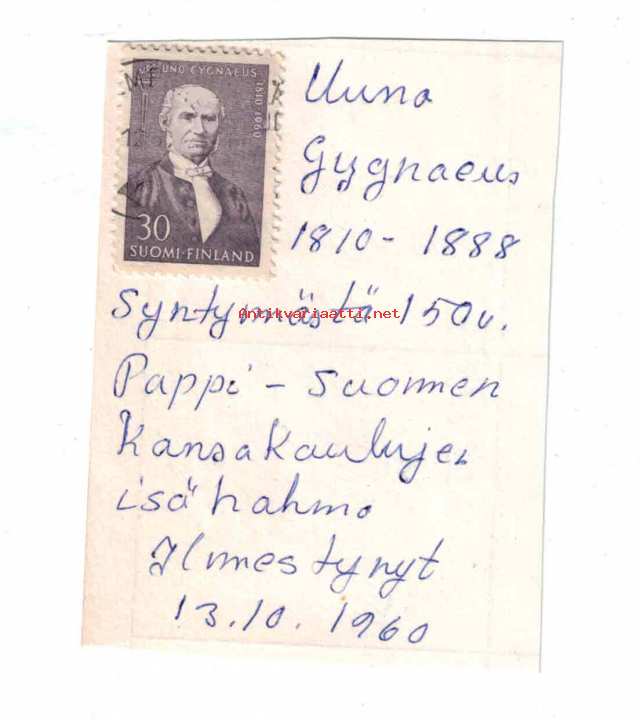 UNO CYGNAEUS
1810-1960
30
SUOMI-FINLAND
Uuno
Gygnaeus
1810 - 1888
Syntymästä 150v.
Antikvariaatti.net
Pappi - Suomen
Kansakoulujen
isä hahmo
Ilmestynyt
13.10. 1960